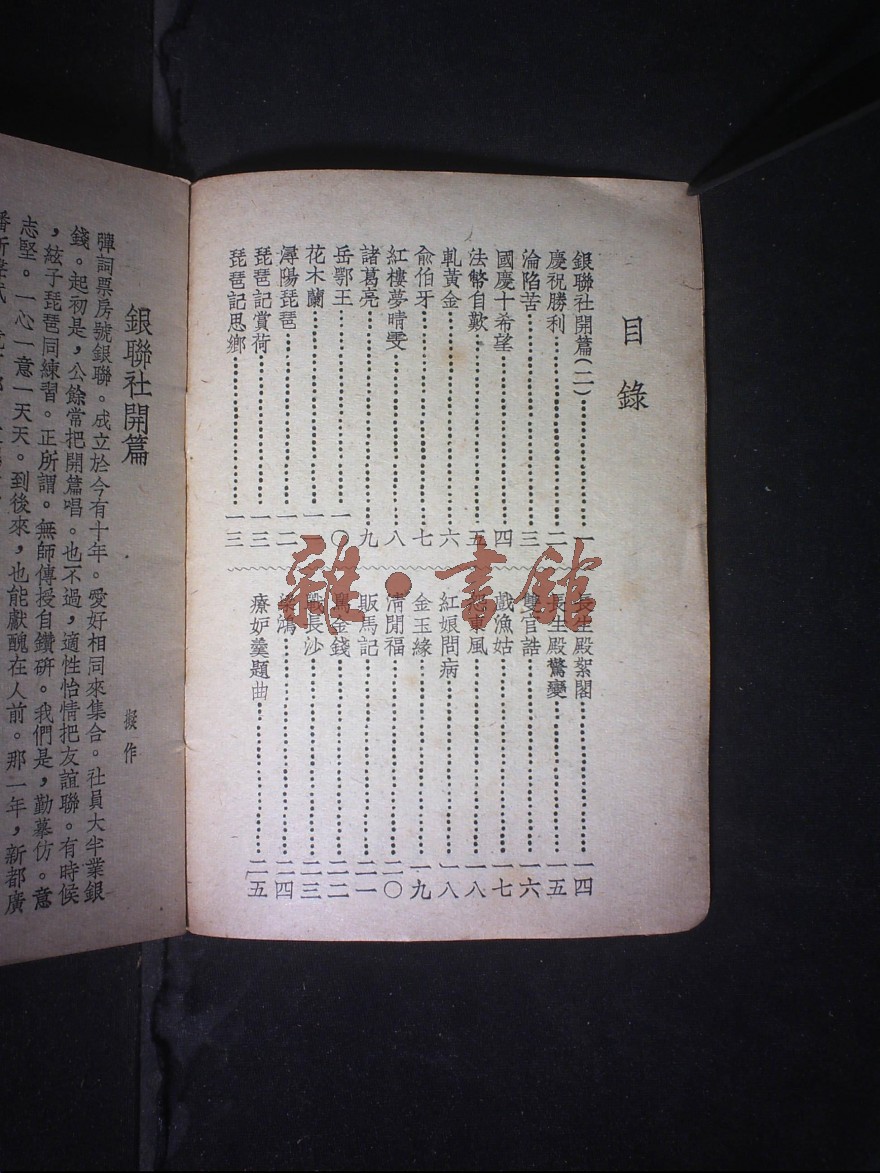 目錄
銀聯社開篇(二)……一
慶祝勝利……二
淪陷苦……三
國慶十希望……四
法幣自歎……五
軋黃金……六
俞伯牙……七
紅樓夢晴雯……八
諸葛亮……九
岳鄂王……一〇
花木蘭……一一
潯陽琵琶……一二
琵琶記賞荷……一三
琵琶記思鄉……一三
長生殿絮閣……一四
長生殿驚變……一五
雙官誥……一六
戲漁姑……一七
東風……一八
紅娘問病……一八
金玉緣……一九
清閒福……二〇
販馬記……二一
金錢……二二
戰長沙……二三
梁鴻……二四
療妒羹題曲……二五
雜·書館
銀聯社開篇
擬作
彈詞票房號銀聯。成立於今有十年。愛好相同來集合。社員大半業銀
錢。起初是,公餘常把開篇唱。也不過,適性怡情把友誼聯。有時候
,絃子琵琶同練習。正所謂。無師傳授自鑽研。我們是,勤摹仿。意
志堅。一心一意一天天。到後來,也能獻醜在人前。那一年,新都廣